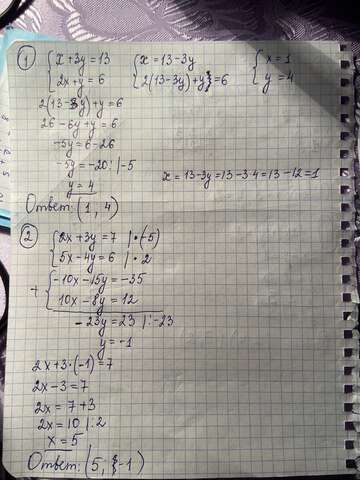 ① { x + 3y = 13 { x = 13 - 3y { x = 1
{ 2x + y = 6 { 2(13 - 3y) + y = 6 { y = 4
2(13 - 3y) + y = 6
26 - 6y + y = 6
-5y = 6 - 26
-5y = -20 : | -5
y = 4
x = 13 - 3y = 13 - 3·4 = 13 - 12 = 1
Ответ: (1, 4)
② { 2x + 3y = 7 | ·(-5)
{ 5x - 4y = 6 | · 2
+ { -10x - 15y = -35
10x - 8y = 12
- 23y = 23 | : -23
y = -1
2x + 3·(-1) = 7
2x - 3 = 7
2x = 7 + 3
2x = 10 | : 2
x = 5
Ответ: (5, -1)